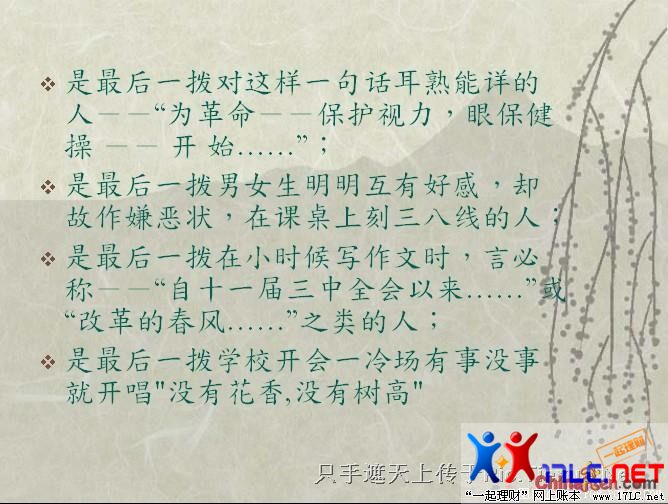 是最后一拨对这样一句话耳熟能详的
人——“为革命——保护视力，眼保健
操 —— 开 始……”；
是最后一拨男女生明明互有好感，却
故作嫌恶状，在课桌上刻三八线的人；
是最后一拨在小时候写作文时，言必
称——“自十一届三中全会以来……”或
“改革的春风……”之类的人；
是最后一拨学校开会一冷场有事没事
就开唱"没有花香,没有树高"
一起理财
只手遮天上传于
17LC.net
“一起理财”网上账本 www.17LC.net